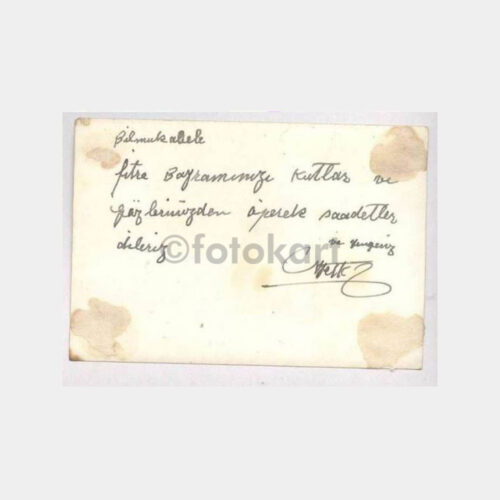 Bilmukabele
fitre Bayramınızı Kutlar ve
gözlerinizden öperek saadetler
dileriz
©fotokart